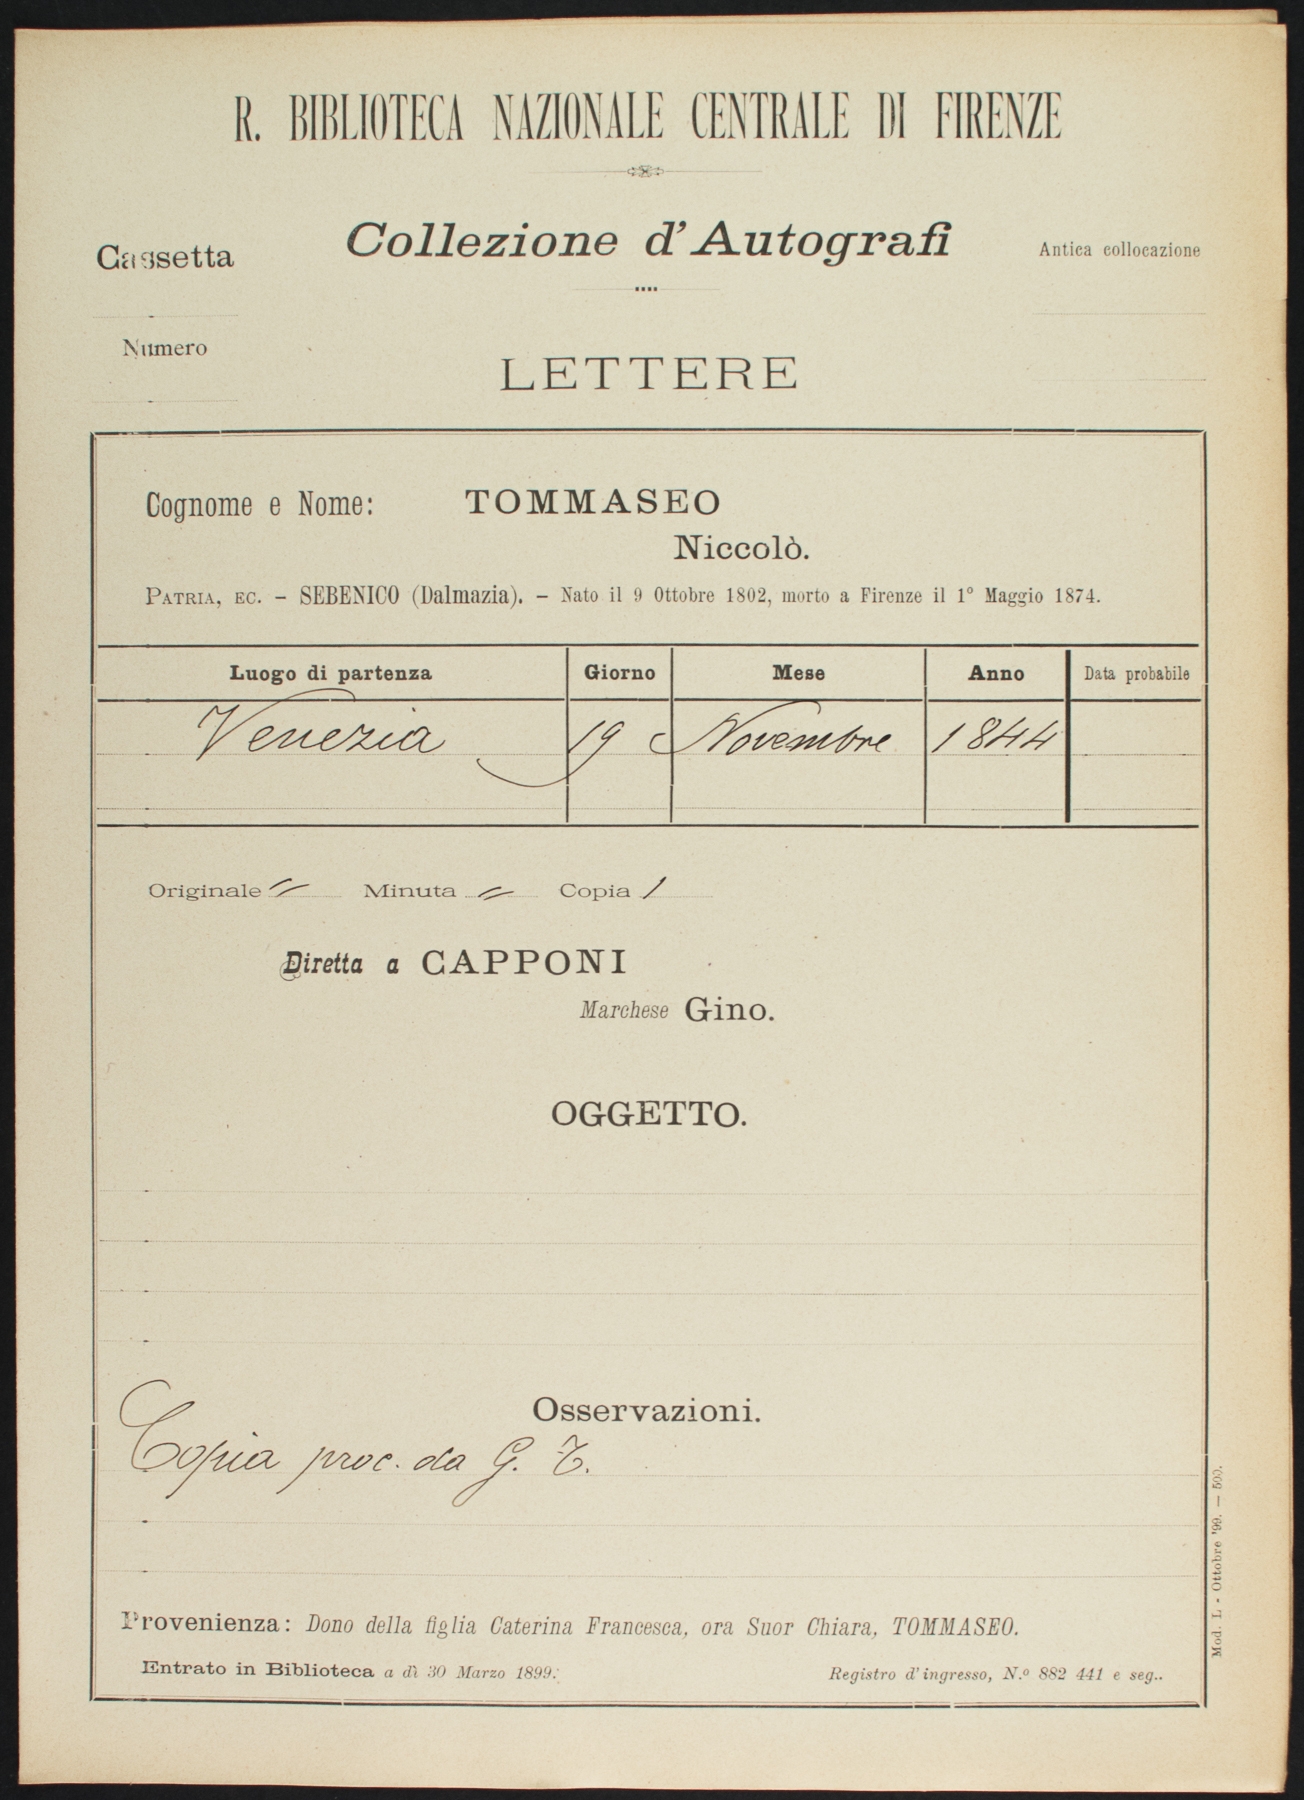 R. BIBLIOTECA NAZIONALE CENTRALE DI FIRENZE
Collezione d'Autografi
Cassetta
Antica collocazione
Numero
LETTERE
Cognome e Nome: TOMMASEO
Niccolò.
PATRIA, EC. – SEBENICO (Dalmazia). – Nato il 9 Ottobre 1802, morto a Firenze il 1° Maggio 1874.
Luogo di partenza Giorno Mese Anno Data probabile
Venezia 19 Novembre 1844
Originale " Minuta " Copia 1
Diretta a CAPPONI
Marchese Gino.
OGGETTO.
Osservazioni.
Copia proc. da G. T.
Provenienza: Dono della figlia Caterina Francesca, ora Suor Chiara, TOMMASEO.
Entrato in Biblioteca a dì 30 Marzo 1899.
Registro d'ingresso, N.° 882 441 e seg..
Mod. L - Ottobre '99. — 500.